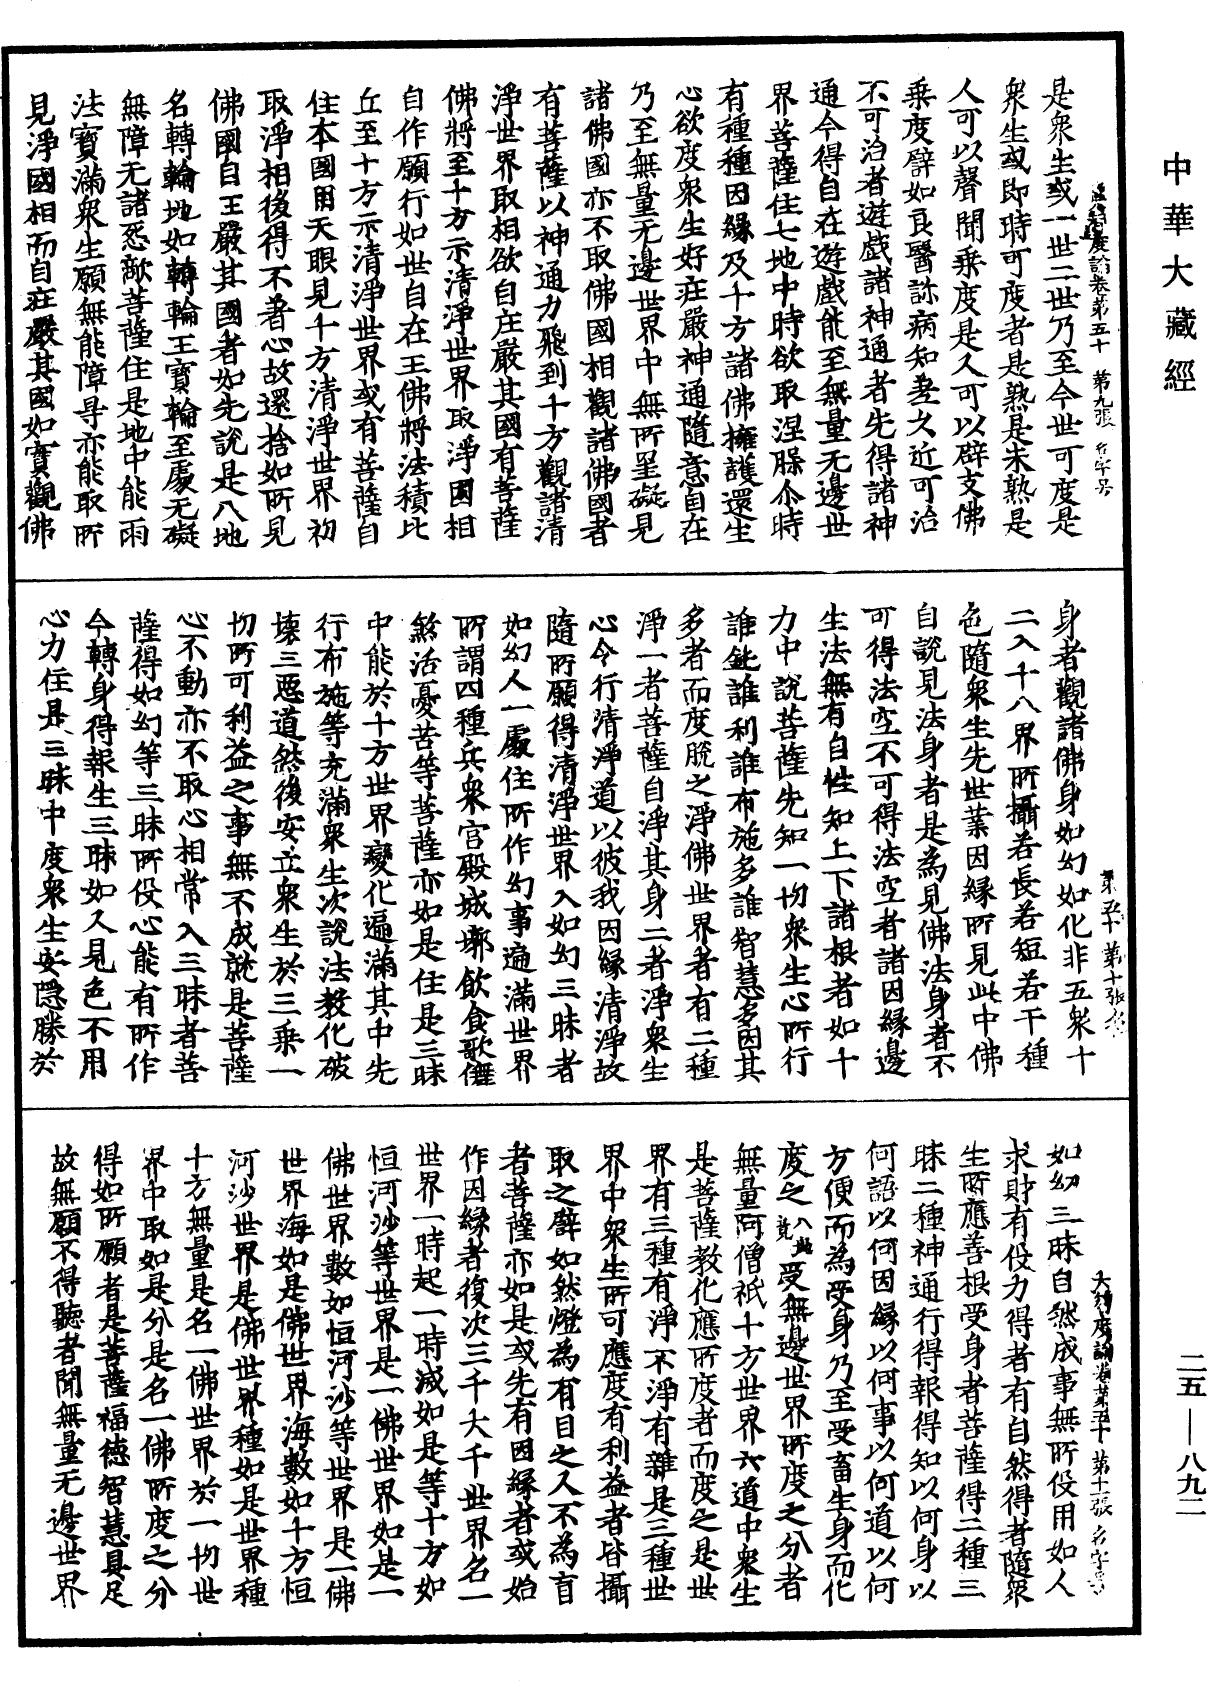 中華大藏經
二五—八九二
大智度論卷第五十 第九張 名字号
是衆生或一世二世乃至今世可度是
衆生或即時可度者是熟是未熟是
人可以聲聞乗度是人可以辟支佛
乗度譬如良醫訴病知差久近可治
不可治者遊戲諸神通者先得諸神
通今得自在遊戲能至無量无邊世
界菩薩住七地中時欲取涅槃尒時
有種種因緣及十方諸佛擁護還生
心欲度衆生好莊嚴神通隨意自在
乃至無量无邊世界中無所罣礙見
諸佛國亦不取佛國相觀諸佛國者
有菩薩以神通力飛到十方觀諸清
淨世界取相欲自庄嚴其國有菩薩
佛將至十方示清淨世界取淨國相
自作願行如世自在王佛將法積比
丘至十方示清淨世界或有菩薩自
住本國用天眼見十方清淨世界初
取淨相後得不著心故還捨如所見
佛國自王嚴其國者如先說是八地
名轉輪地如轉輪王寶輪至處无礙
無障无諸惡敵菩薩住是地中能雨
法寶滿衆生願無能障㝵亦能取所
見淨國相而自莊嚴其國如實觀佛
第五十 第十張
身者觀諸佛身如幻如化非五衆十
二入十八界所攝若長若短若干種
色隨衆生先世業因緣所見此中佛
自說見法身者是為見佛法身者不
可得法空不可得法空者諸因緣邊
生法無有自性知上下諸根者如十
力中說菩薩先知一切衆生心所行
誰鈍誰利誰布施多誰智慧多因其
多者而度脫之淨佛世界者有二種
淨一者菩薩自淨其身二者淨衆生
心令行清淨道以彼我因緣清淨故
隨所願得清淨世界入如幻三昧者
如幻人一處住所作幻事遍滿世界
所謂四種兵衆宮殿城墎飲食歌儛
煞活憂苦等菩薩亦如是住是三昧
中能於十方世界變化遍滿其中先
行布施等充滿衆生次說法教化破
壞三惡道然後安立衆生於三乗一
切所可利益之事無不成就是菩薩
心不動亦不取心相常入三昧者菩
薩得如幻等三昧所役心能有所作
今轉身得報生三昧如人見色不用
心力住是三昧中度衆生安隱勝於
大智度論卷第五十 第十一張 名字号
如幻三昧自然成事無所役用如人
求財有役力得者有自然得者隨衆
生所應善根受身者菩薩得二種三
昧二種神通行得報得知以何身以
何語以何因緣以何事以何道以何
方便而為受身乃至受畜生身而化
度之八地竟受無邊世界所度之分者
無量阿僧祇十方世界六道中衆生
是菩薩教化應所度者而度之是世
界有三種有淨不淨有雜是三種世
界中衆生所可應度有利益者皆攝
取之譬如然燈為有目之人不為盲
者菩薩亦如是或先有因緣者或始
作因緣者復次三千大千世界名一
世界一時起一時滅如是等十方如
恒河沙等世界是一佛世界如是一
佛世界數如恒河沙等世界是一佛
世界海如是佛世界海數如十方恒
河沙世界是佛世界種如是世界種
十方無量是名一佛世界於一切世
界中取如是分是名一佛所度之分
得如所願者是菩薩福德智慧具足
故無願不得聽者聞無量无邊世界